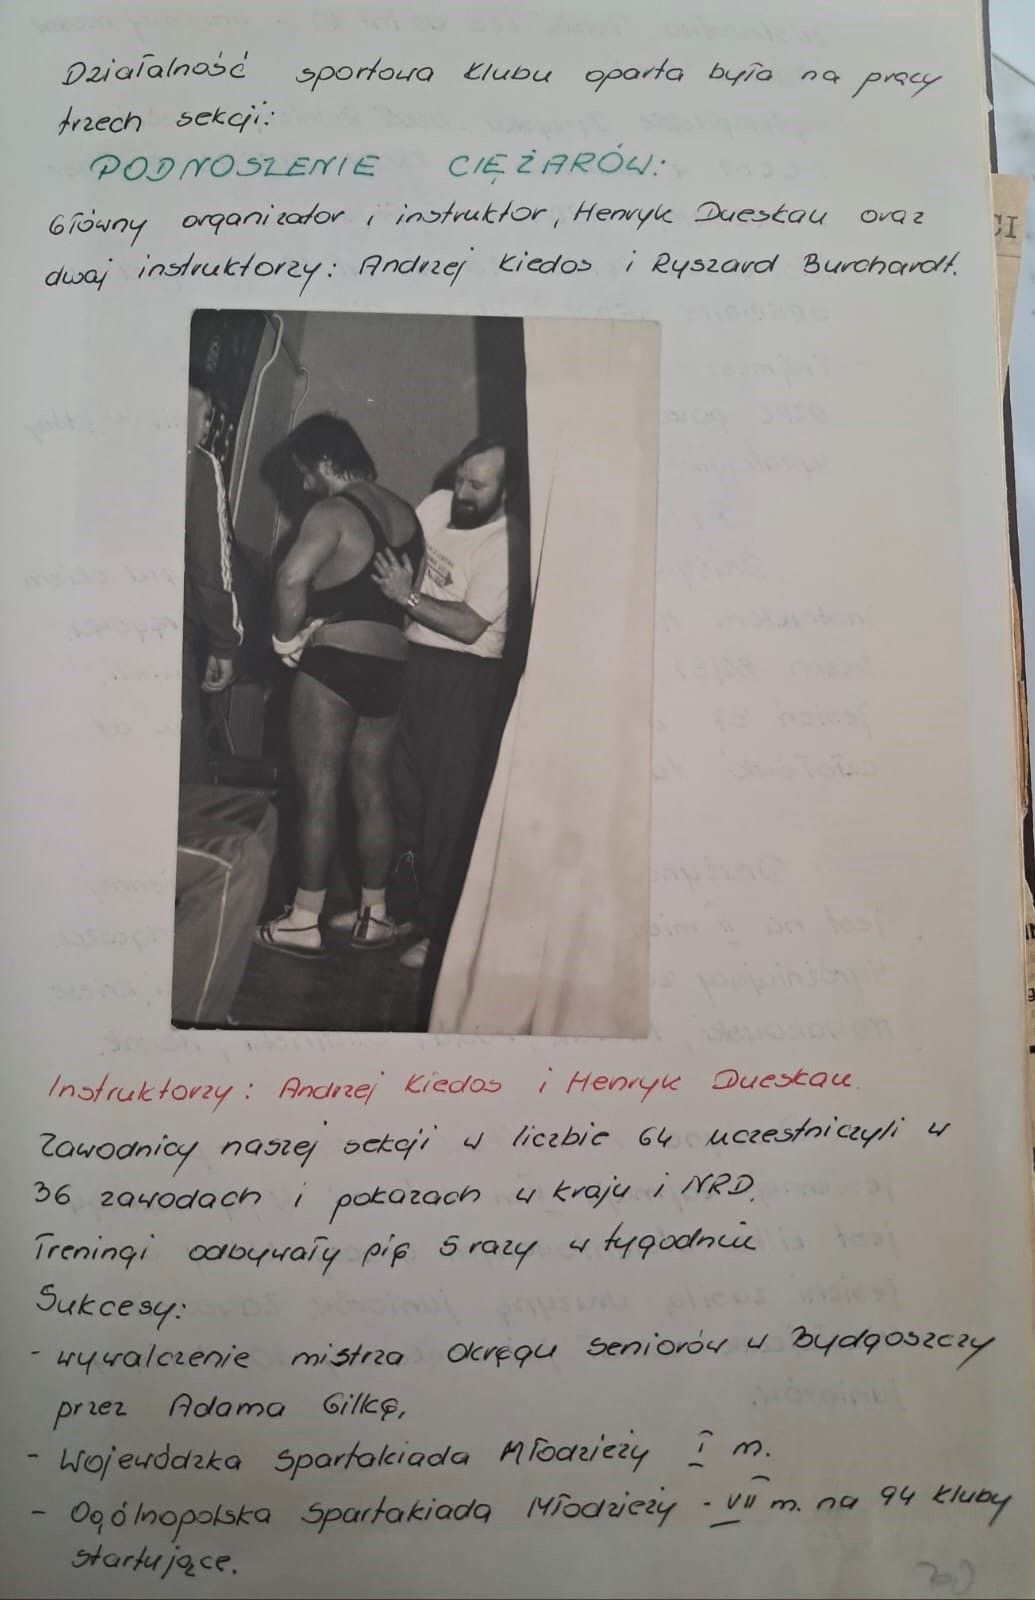 Działalność sportowa klubu oparta była na pracy
trzech sekcji:
PODNOSZENIE CIĘŻARÓW:
Główny organizator i instruktor, Henryk Dueskau oraz
dwaj instruktorzy: Andrzej Kiedos i Ryszard Burchardt.
Instruktorzy: Andrzej Kiedos i Henryk Dueskau.
Zawodnicy naszej sekcji w liczbie 64 uczestniczyli w
36 zawodach i pokazach w kraju i NRD.
Treningi odbywały się 5 razy w tygodniu
Sukcesy:
- wywalczenie mistrza okręgu seniorów w Bydgoszczy
przez Adama Gilkę,
- Wojewódzka Spartakiada Młodzieży I m.
- Ogólnopolska Spartakiada Młodzieży - VII m. na 94 kluby
startujące.